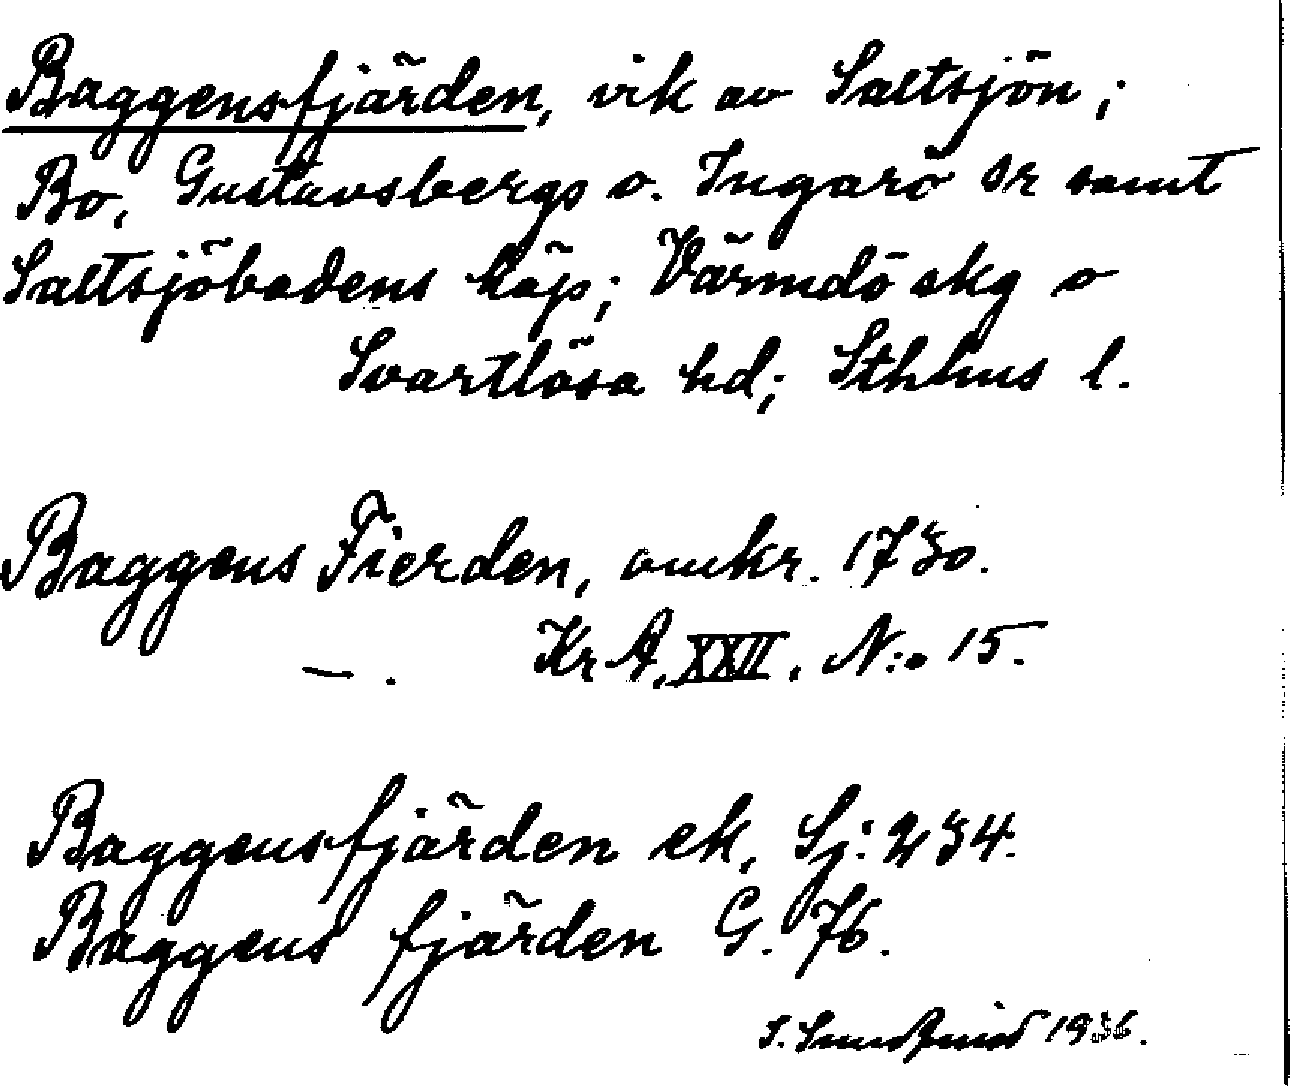 Baggensfjärden, vik av Saltsjön;
Bo, Gustavsbergs o. Ingarö sr samt
Saltsjöbadens köp; Värmdö skg o
Svartlösa hd; Sthlms l.
Baggens Fierden, omkr. 1730.
—. Kr A, XXII, N:o 15.
Baggensfjärden ek. Sj: 234.
Baggens fjärden G. 76.
S. 1936.